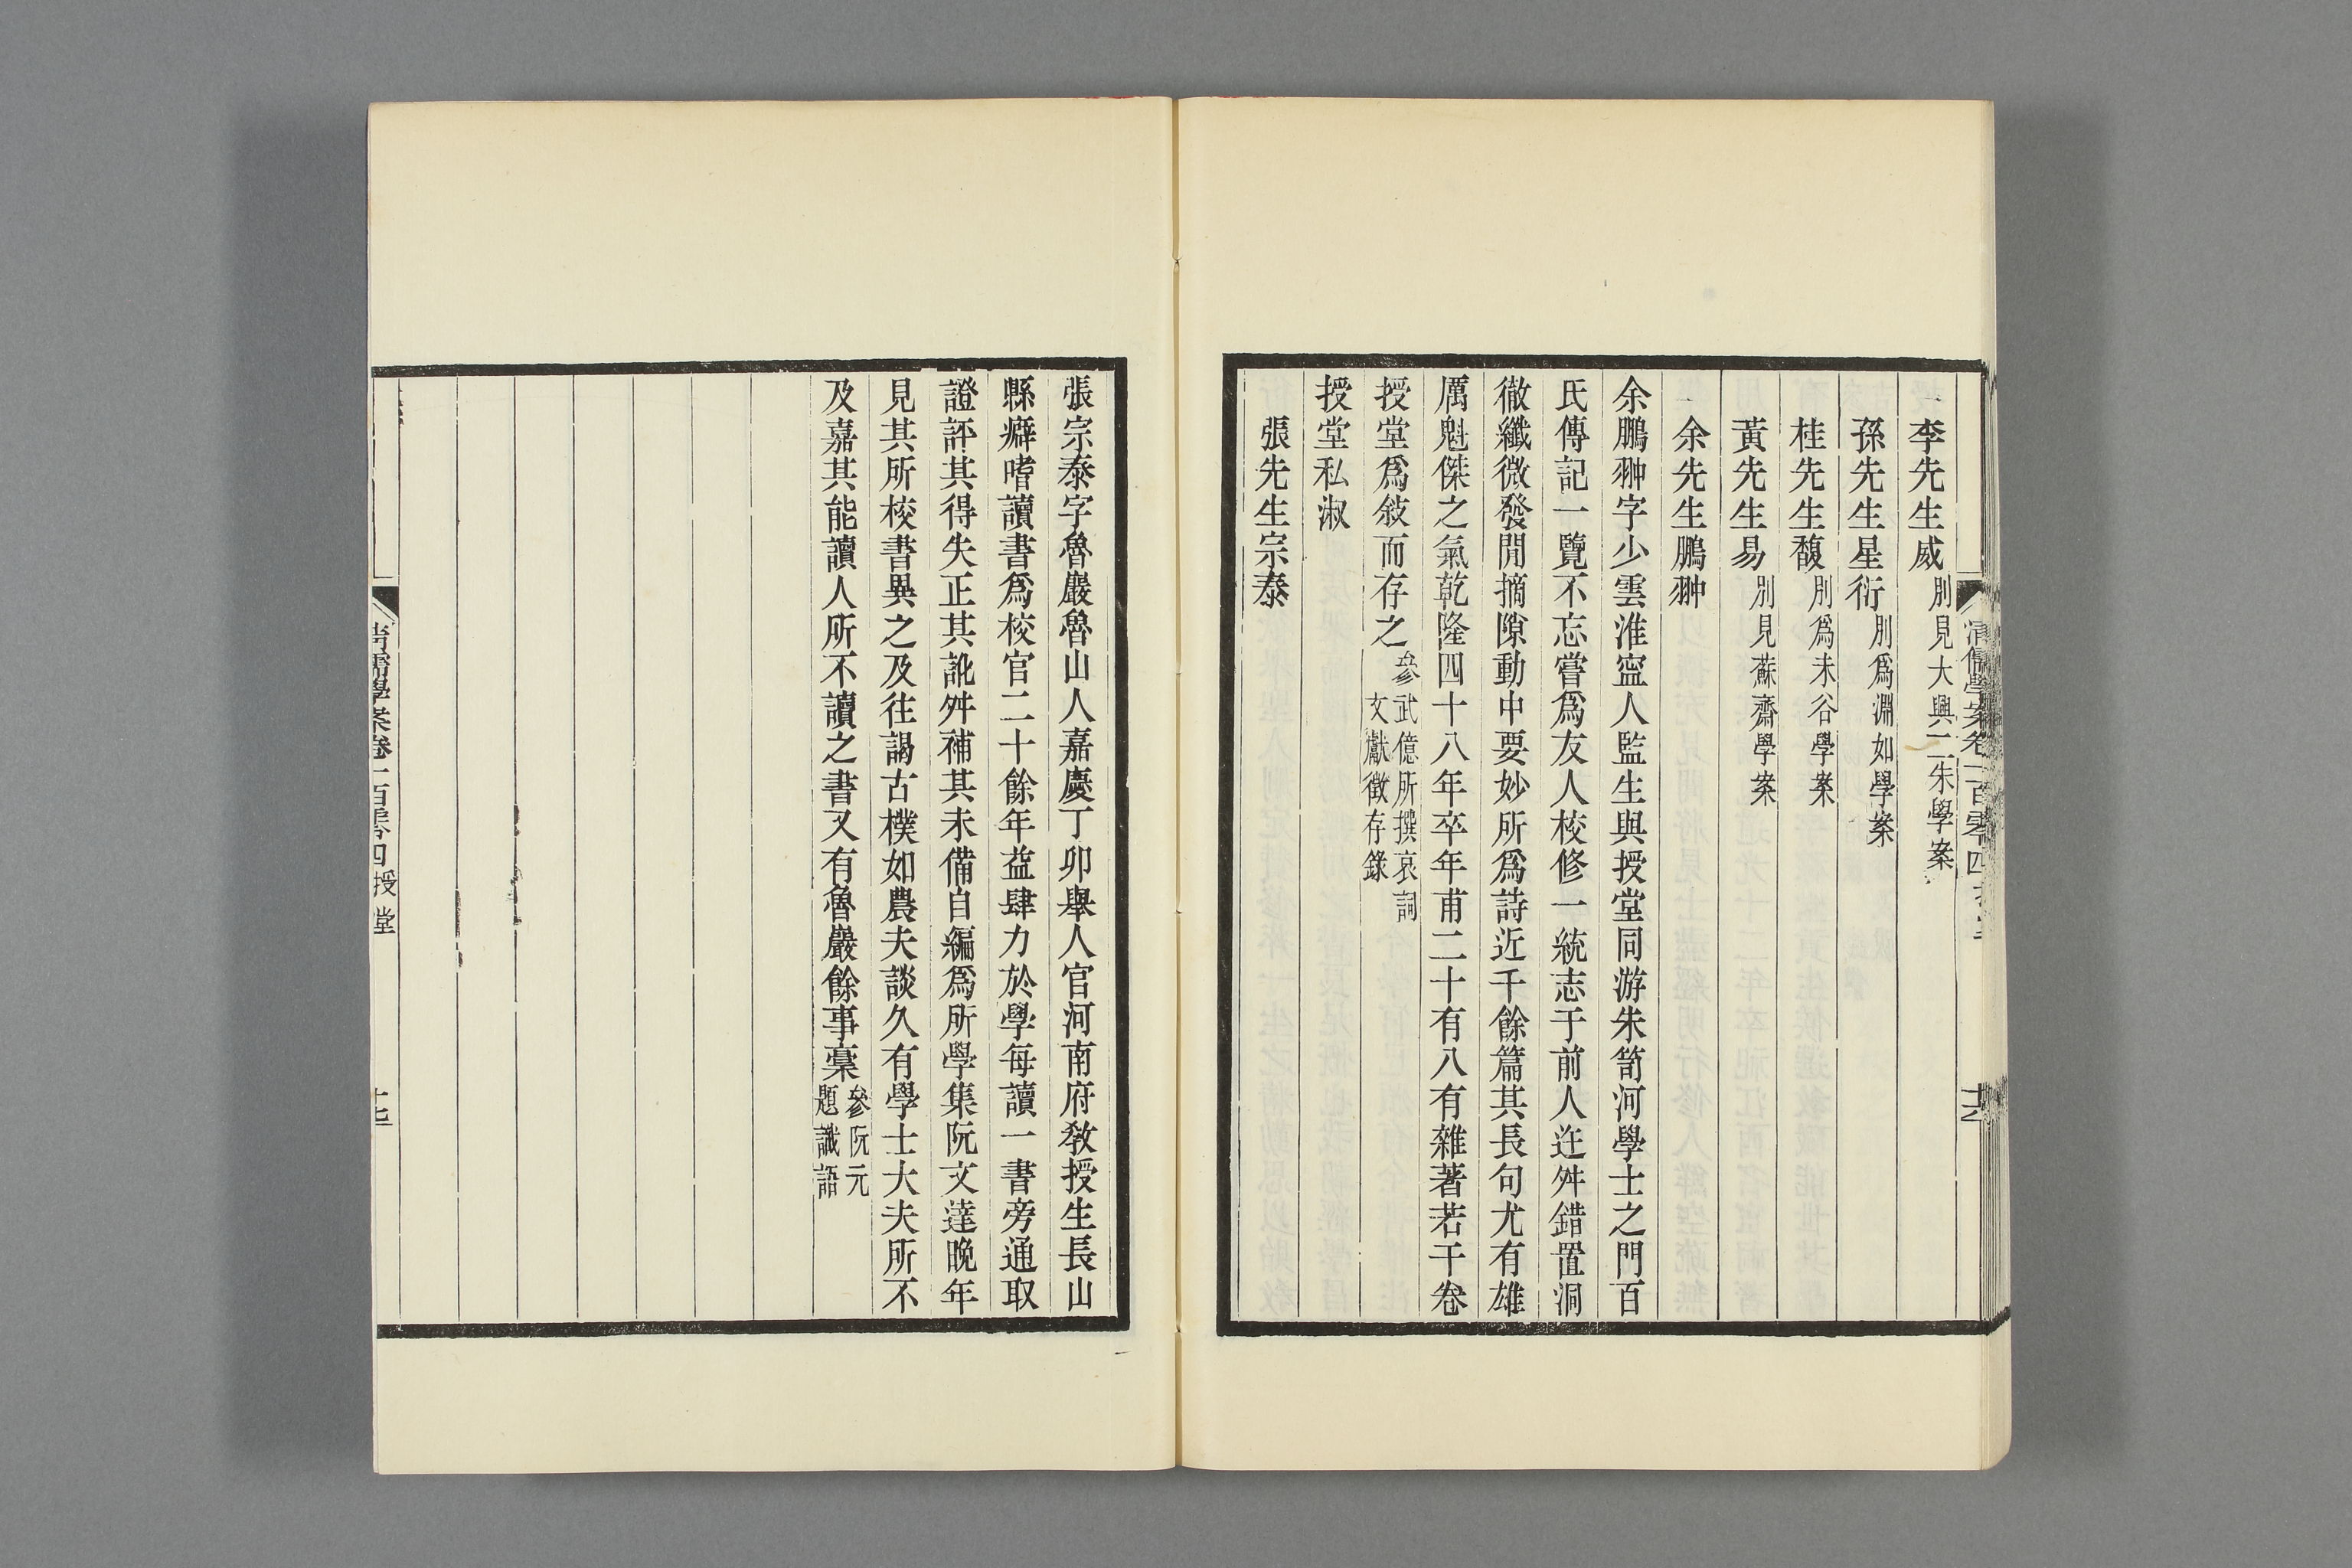 李先生威別見大興二朱學案
孫先生星衍別爲淵如學案
桂先生馥別爲未谷學案
黃先生易別見蘇齋學案
余先生鵬翀
余鵬翀字少雲淮寍人監生與授堂同游朱笥河學士之門百
氏傳記一覽不忘嘗爲友人校修一統志于前人迕舛錯置洞
徹纖微發閒摘隙動中要妙所爲詩近千餘篇其長句尤有雄
厲魁傑之氣乾隆四十八年卒年甫二十有八有雜著若干卷
授堂爲敍而存之參武億所撰哀詞文獻徵存錄
授堂私淑
張先生宗泰
張宗泰字魯巖魯山人嘉慶丁卯舉人官河南府敎授生長山
縣癖嗜讀書爲校官二十餘年益肆力於學每讀一書旁通取
證評其得失正其訛舛補其未備自編爲所學集阮文達晚年
見其所校書異之及往謁古樸如農夫談久有學士大夫所不
及嘉其能讀人所不讀之書又有魯巖餘事稾參阮元題識語
清儒學案卷一百零四 授堂
十七